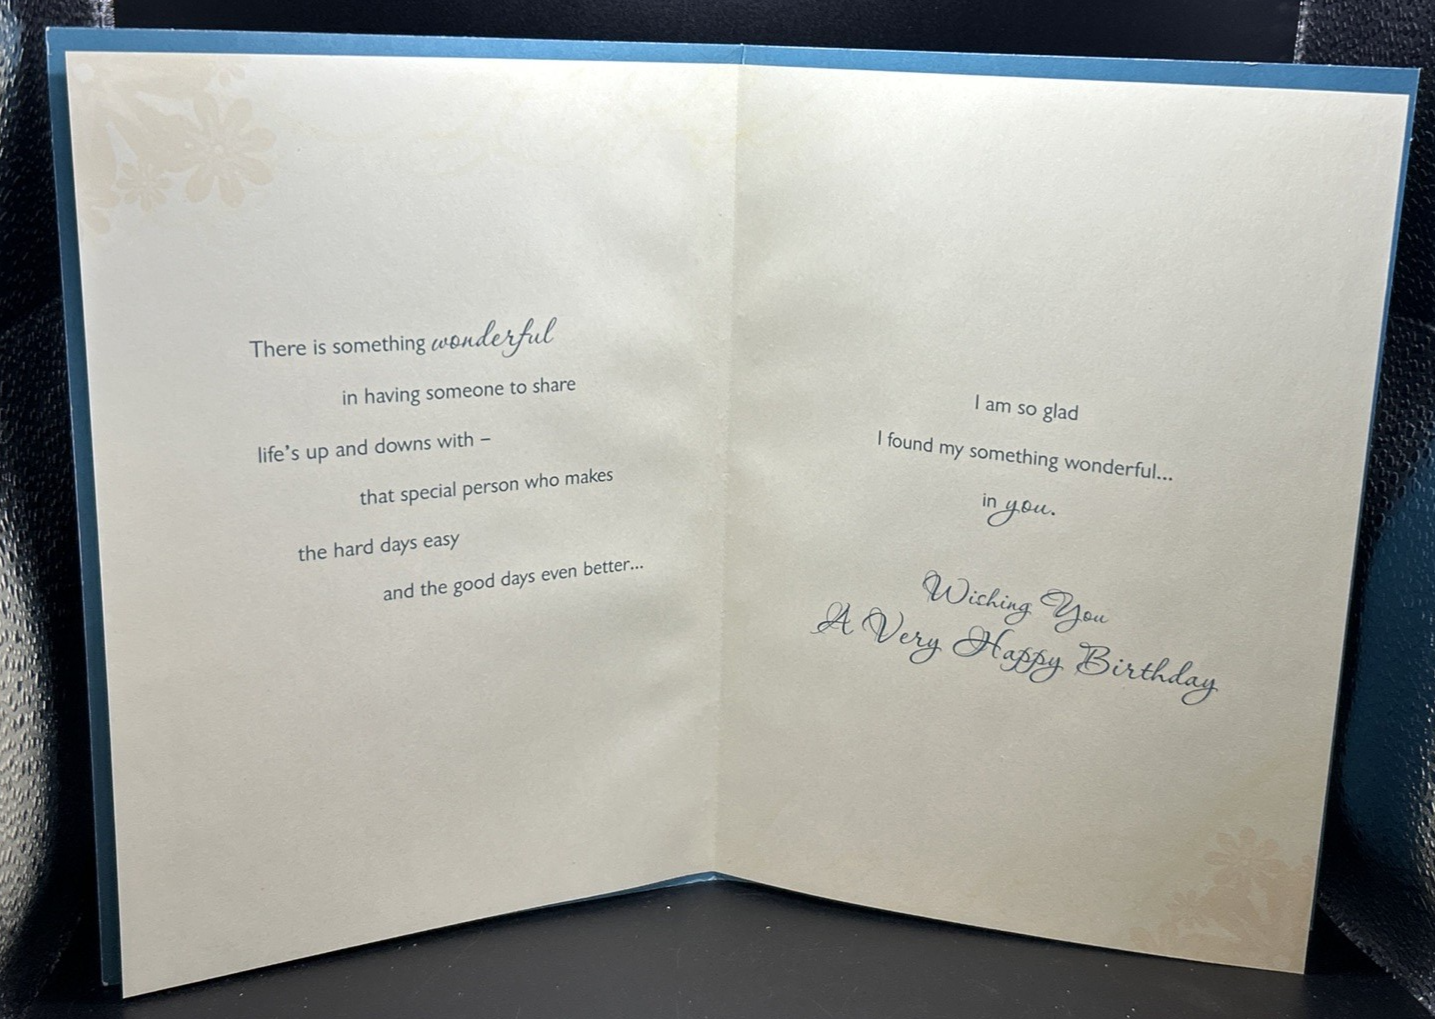 There is something wonderful
in having someone to share
life's up and downs with –
that special person who makes
the hard days easy
and the good days even better...
I am so glad
I found my something wonderful...
in you.
Wishing You
A Very Happy Birthday